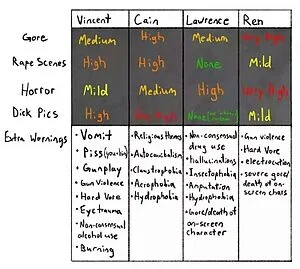 Vincent Cain Lawrence Ren
Gore Medium High Medium Very High
Rape Scenes High High None Mild
Horror Mild Medium High Very High
Dick Pics High Very High None Mild
Extra Warnings
• Vomit
• Piss
• Gunplay
• Gun Violence
• Hard Vore
• Eye trauma
• Non-consensual
alcohol use
• Burning
• Religious themes
• Autocannibalism
• Claustrophobia
• Aerophobia
• Hydrophobia
• Non-consensual
drug use
• Hallucinations
• Insectophobia
• Amputation
• Hydrophobia
• Gore/death of
on-screen
character
• Gun violence
• Hard Vore
• electrocution
• severe gore/
death of on-
screen chars